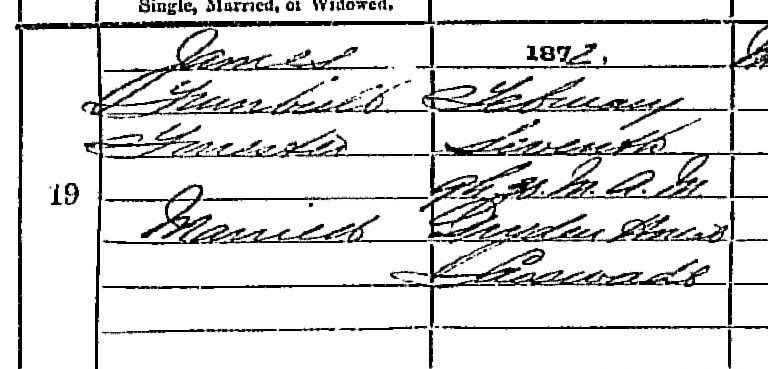 Single, Married, or Widowed.
19
James
Turnbull
Forester
Married
1872,
February
Seventh
M. A. M.
Dryden House
Lasswade